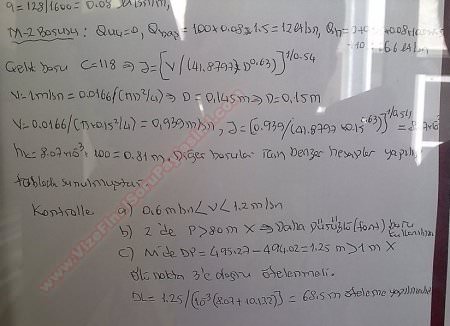 q = 128/1600 = 0.08
M-2 Borusu: Quç=0, Qbaş= 100*0.08*1.5=12 lt/sn,
Çelik boru C=118 => J=[V/(41.8797*D^0.63)]^1/0.54
V=1m/sn=0.0166/(πD²/4) => D=0.145m => D=0.15m
V=0.0166/(π*0.15²/4)=0.939m/sn, J=(0.939/(41.8797*0.15^0.63))^1/0.54 = 8.07*10^-3
hk=8.07*10^-3*100=0.81m. Diğer borular için benzer hesaplar yapılıp
tabloda sunulmuştur.
Kontroller a) 0.6m/sn<V<1.2m/sn
b) 2'de P>80m X => Daha pürüzlü(font) boru kullanılmalı
c) M'de DP=495.27-494.02=1.25m>1m X
Ölü nokta 3'e doğru ötelenmeli.
DL=1.25/[10^-3(8.07+10.132)]=68.5m öteleme yapılmalıdır
www.VizeFinalSoruPaylasimi.com